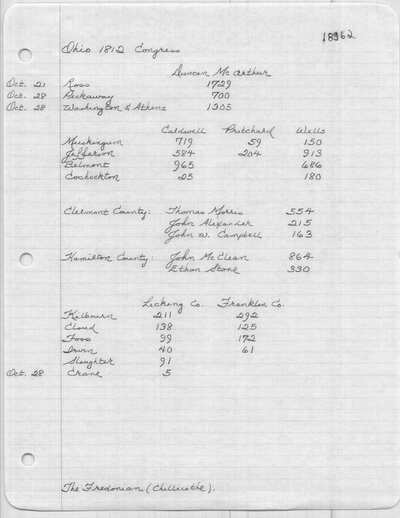 18962
Ohio 1812 Congress
Duncan McArthur
Oct. 21 Ross 1729
Oct. 28 Pickaway 700
Oct. 28 Washington & Athens 1305
Caldwell Pritchard Wells
Muskingum 719 59 150
Jefferson 584 204 913
Belmont 965 686
Coshockton 25 180
Clermont County: Thomas Morris 554
John Alexander 215
John W. Campbell 163
Hamilton County: John McClean 864
Ethan Stone 330
Licking Co. Franklin Co.
Kilbourn 211 292
Cloud 138 125
Foos 99 172
Irwin 40 61
Slaughter 91
Oct. 28 Crane 5
The Fredonian (Chillicothe).